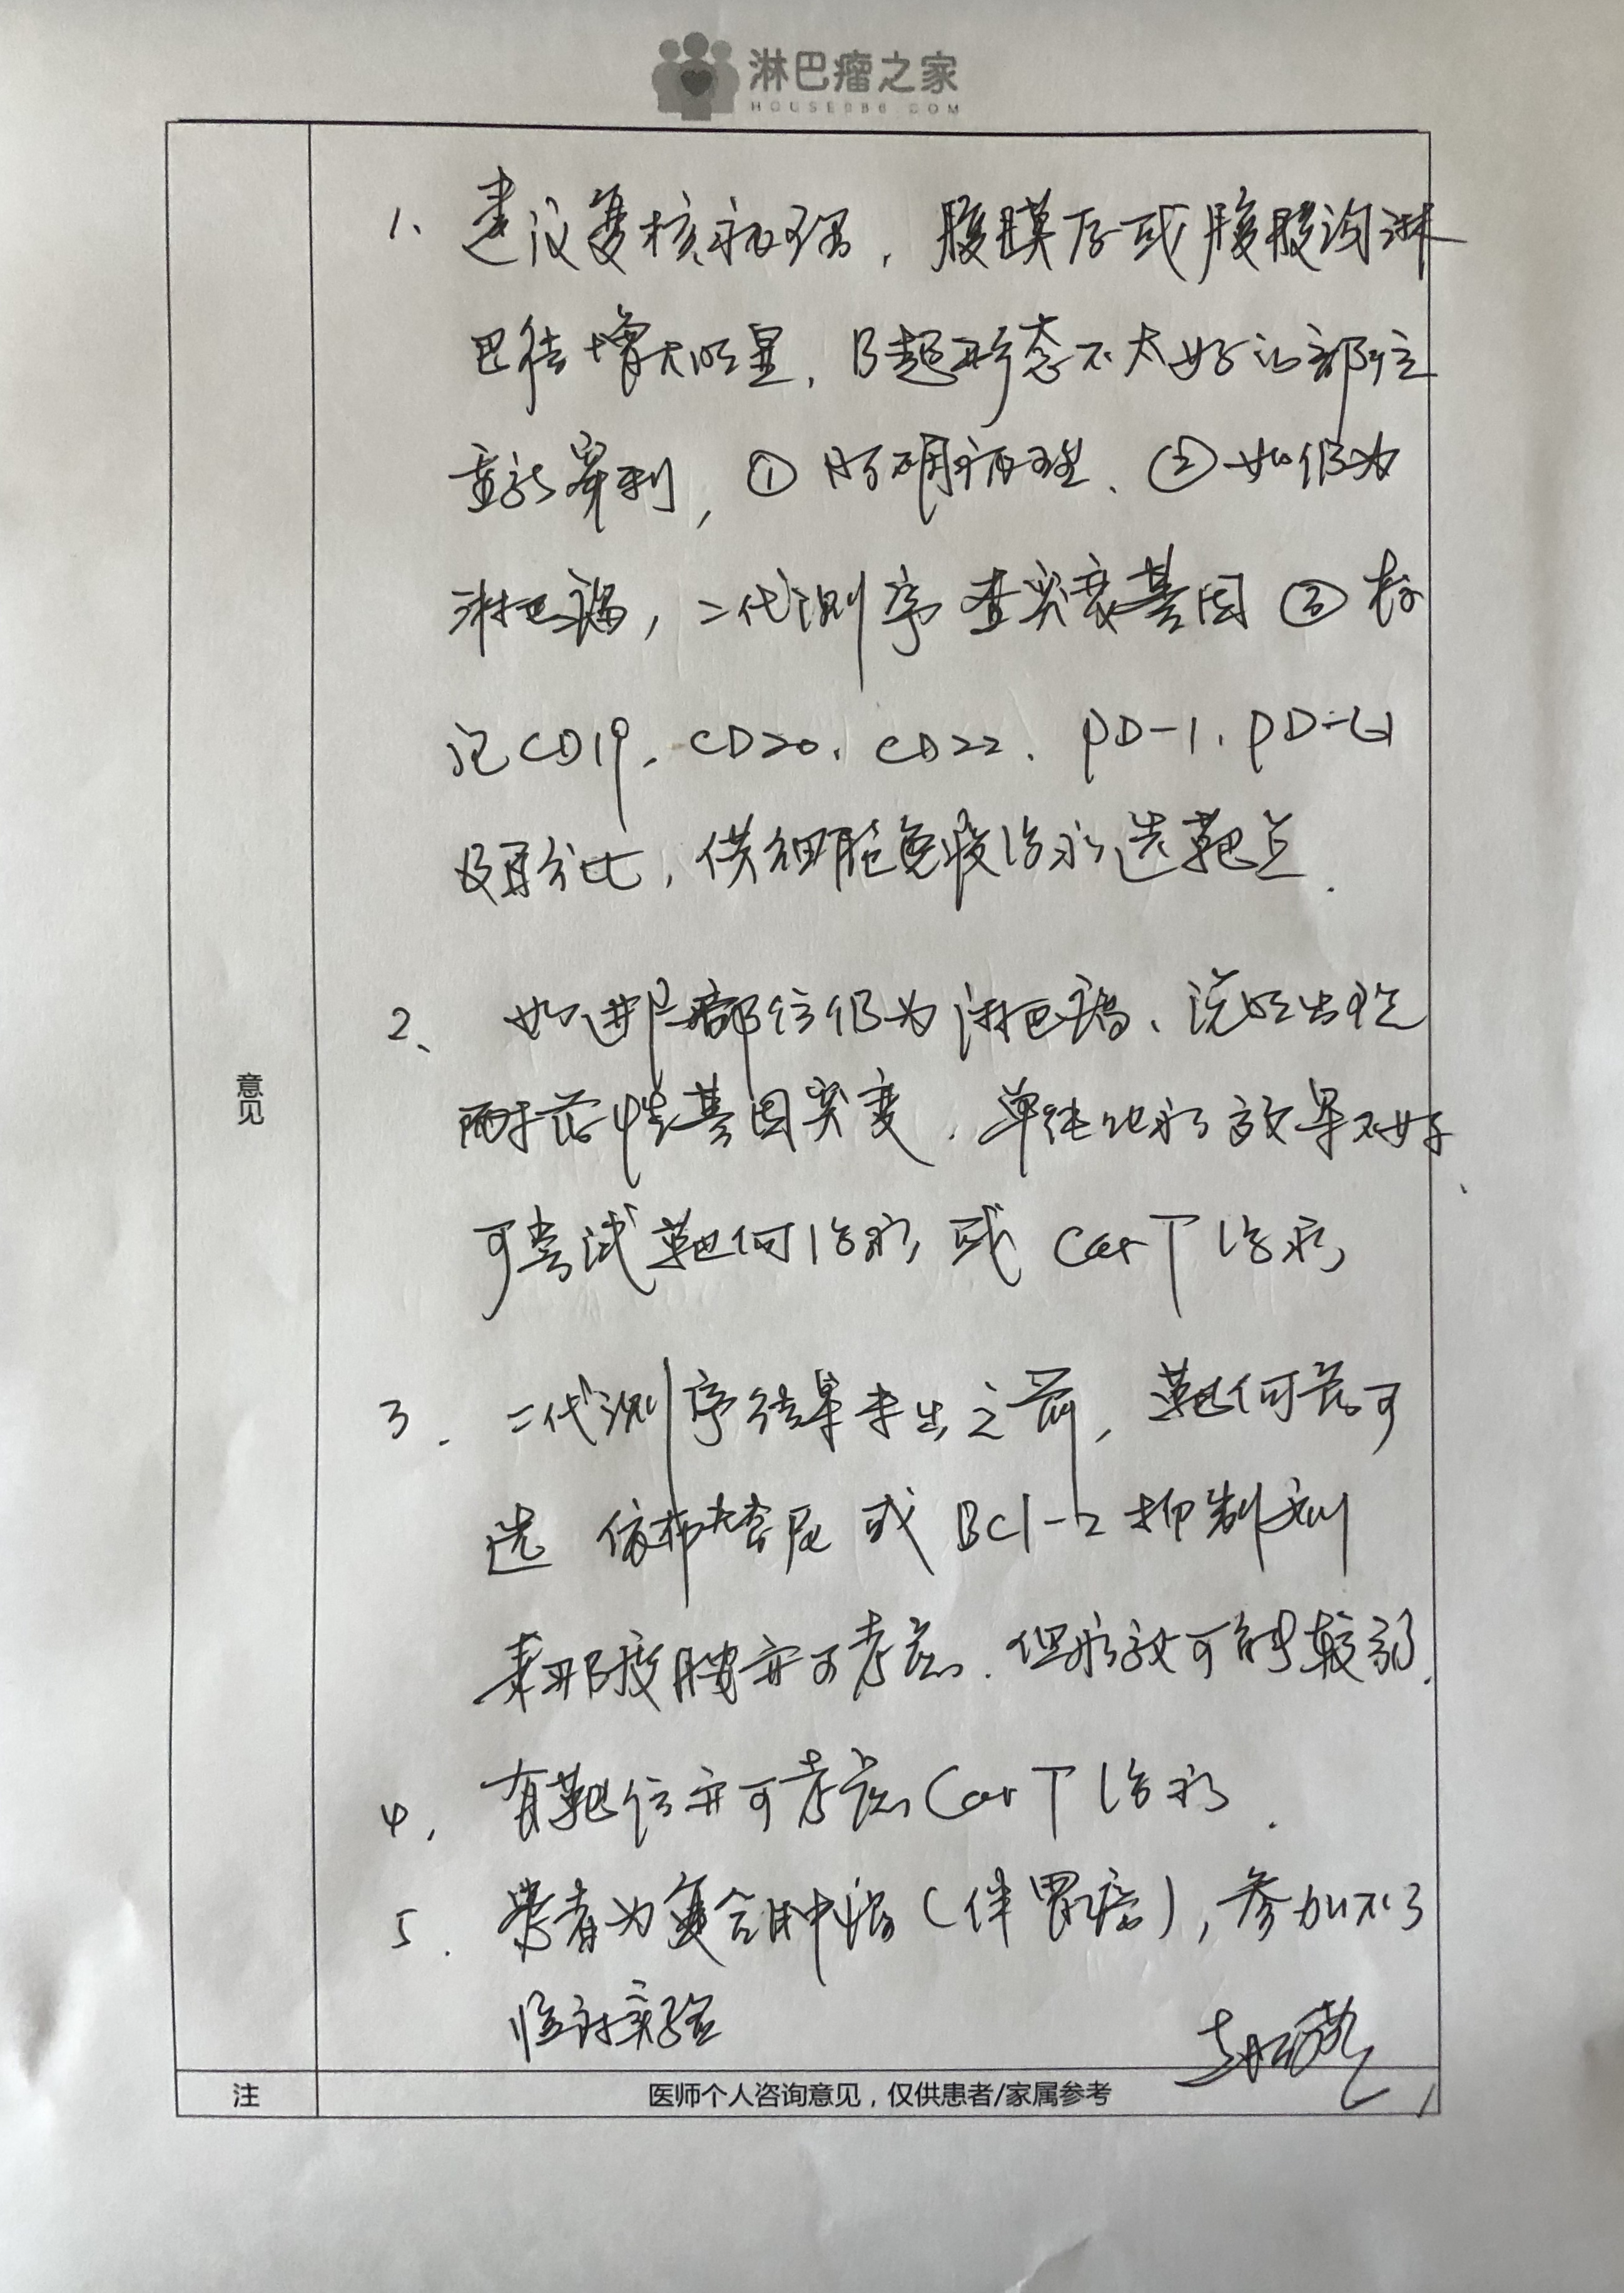 淋巴瘤之家
HOUSE086.COM
1、建议复核病理,腹膜后或腹股沟淋
巴结增大明显,B超形态不太好的部位
重新穿刺,①明确病理、②如仍为
淋巴瘤,二代测序查突变基因③标
记CD19、CD20、CD22、PD-1、PD-L1
及百分比,供细胞免疫治疗选靶点.
2、如进展部位仍为淋巴瘤、说明出现
耐药性基因突变,单纯化疗效果不好、
可尝试靶向治疗或CarT治疗
3.二代测序结果未出之前,靶向药可
选 依布替尼或Bcl-2抑制剂
来那度胺亦可考虑.但疗效可能较弱.
4.有靶位亦可考虑CarT治疗.
5.患者为复合肿瘤(伴胃癌),参加不了
临床实验
意见
注
医师个人咨询意见,仅供患者/家属参考